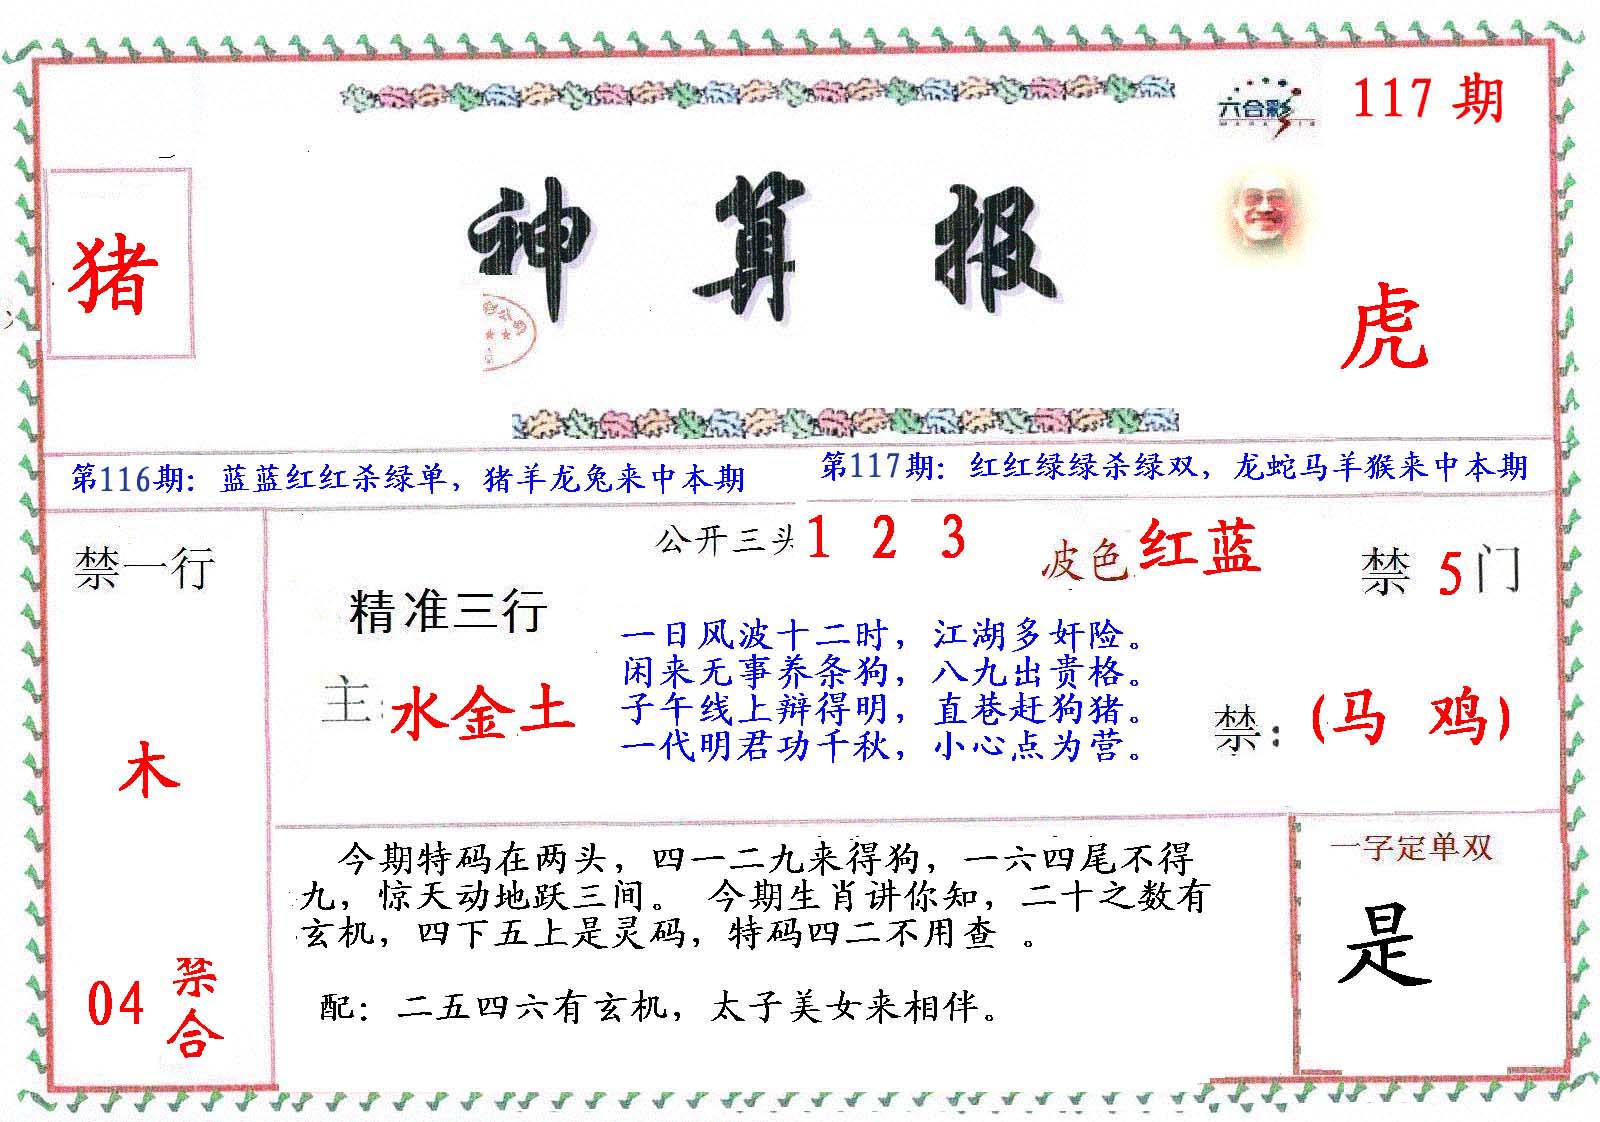 六合彩
117 期
猪
神算报
虎
第116期：蓝蓝红红杀绿单，猪羊龙兔来中本期
第117期：红红绿绿杀绿双，龙蛇马羊猴来中本期
禁一行
木
04 禁合
公开三头 1 2 3
波色 红蓝
禁 5 门
精准三行
主：水金土
一日风波十二时，江湖多奸险。
闲来无事养条狗，八九出贵格。
子午线上辩得明，直巷赶狗猪。
一代明君功千秋，小心点为营。
禁：(马 鸡)
今期特码在两头，四一二九来得狗，一六四尾不得
九，惊天动地跃三间。 今期生肖讲你知，二十之数有
玄机，四下五上是灵码，特码四二不用查 。
配：二五四六有玄机，太子美女来相伴。
一字定单双
是